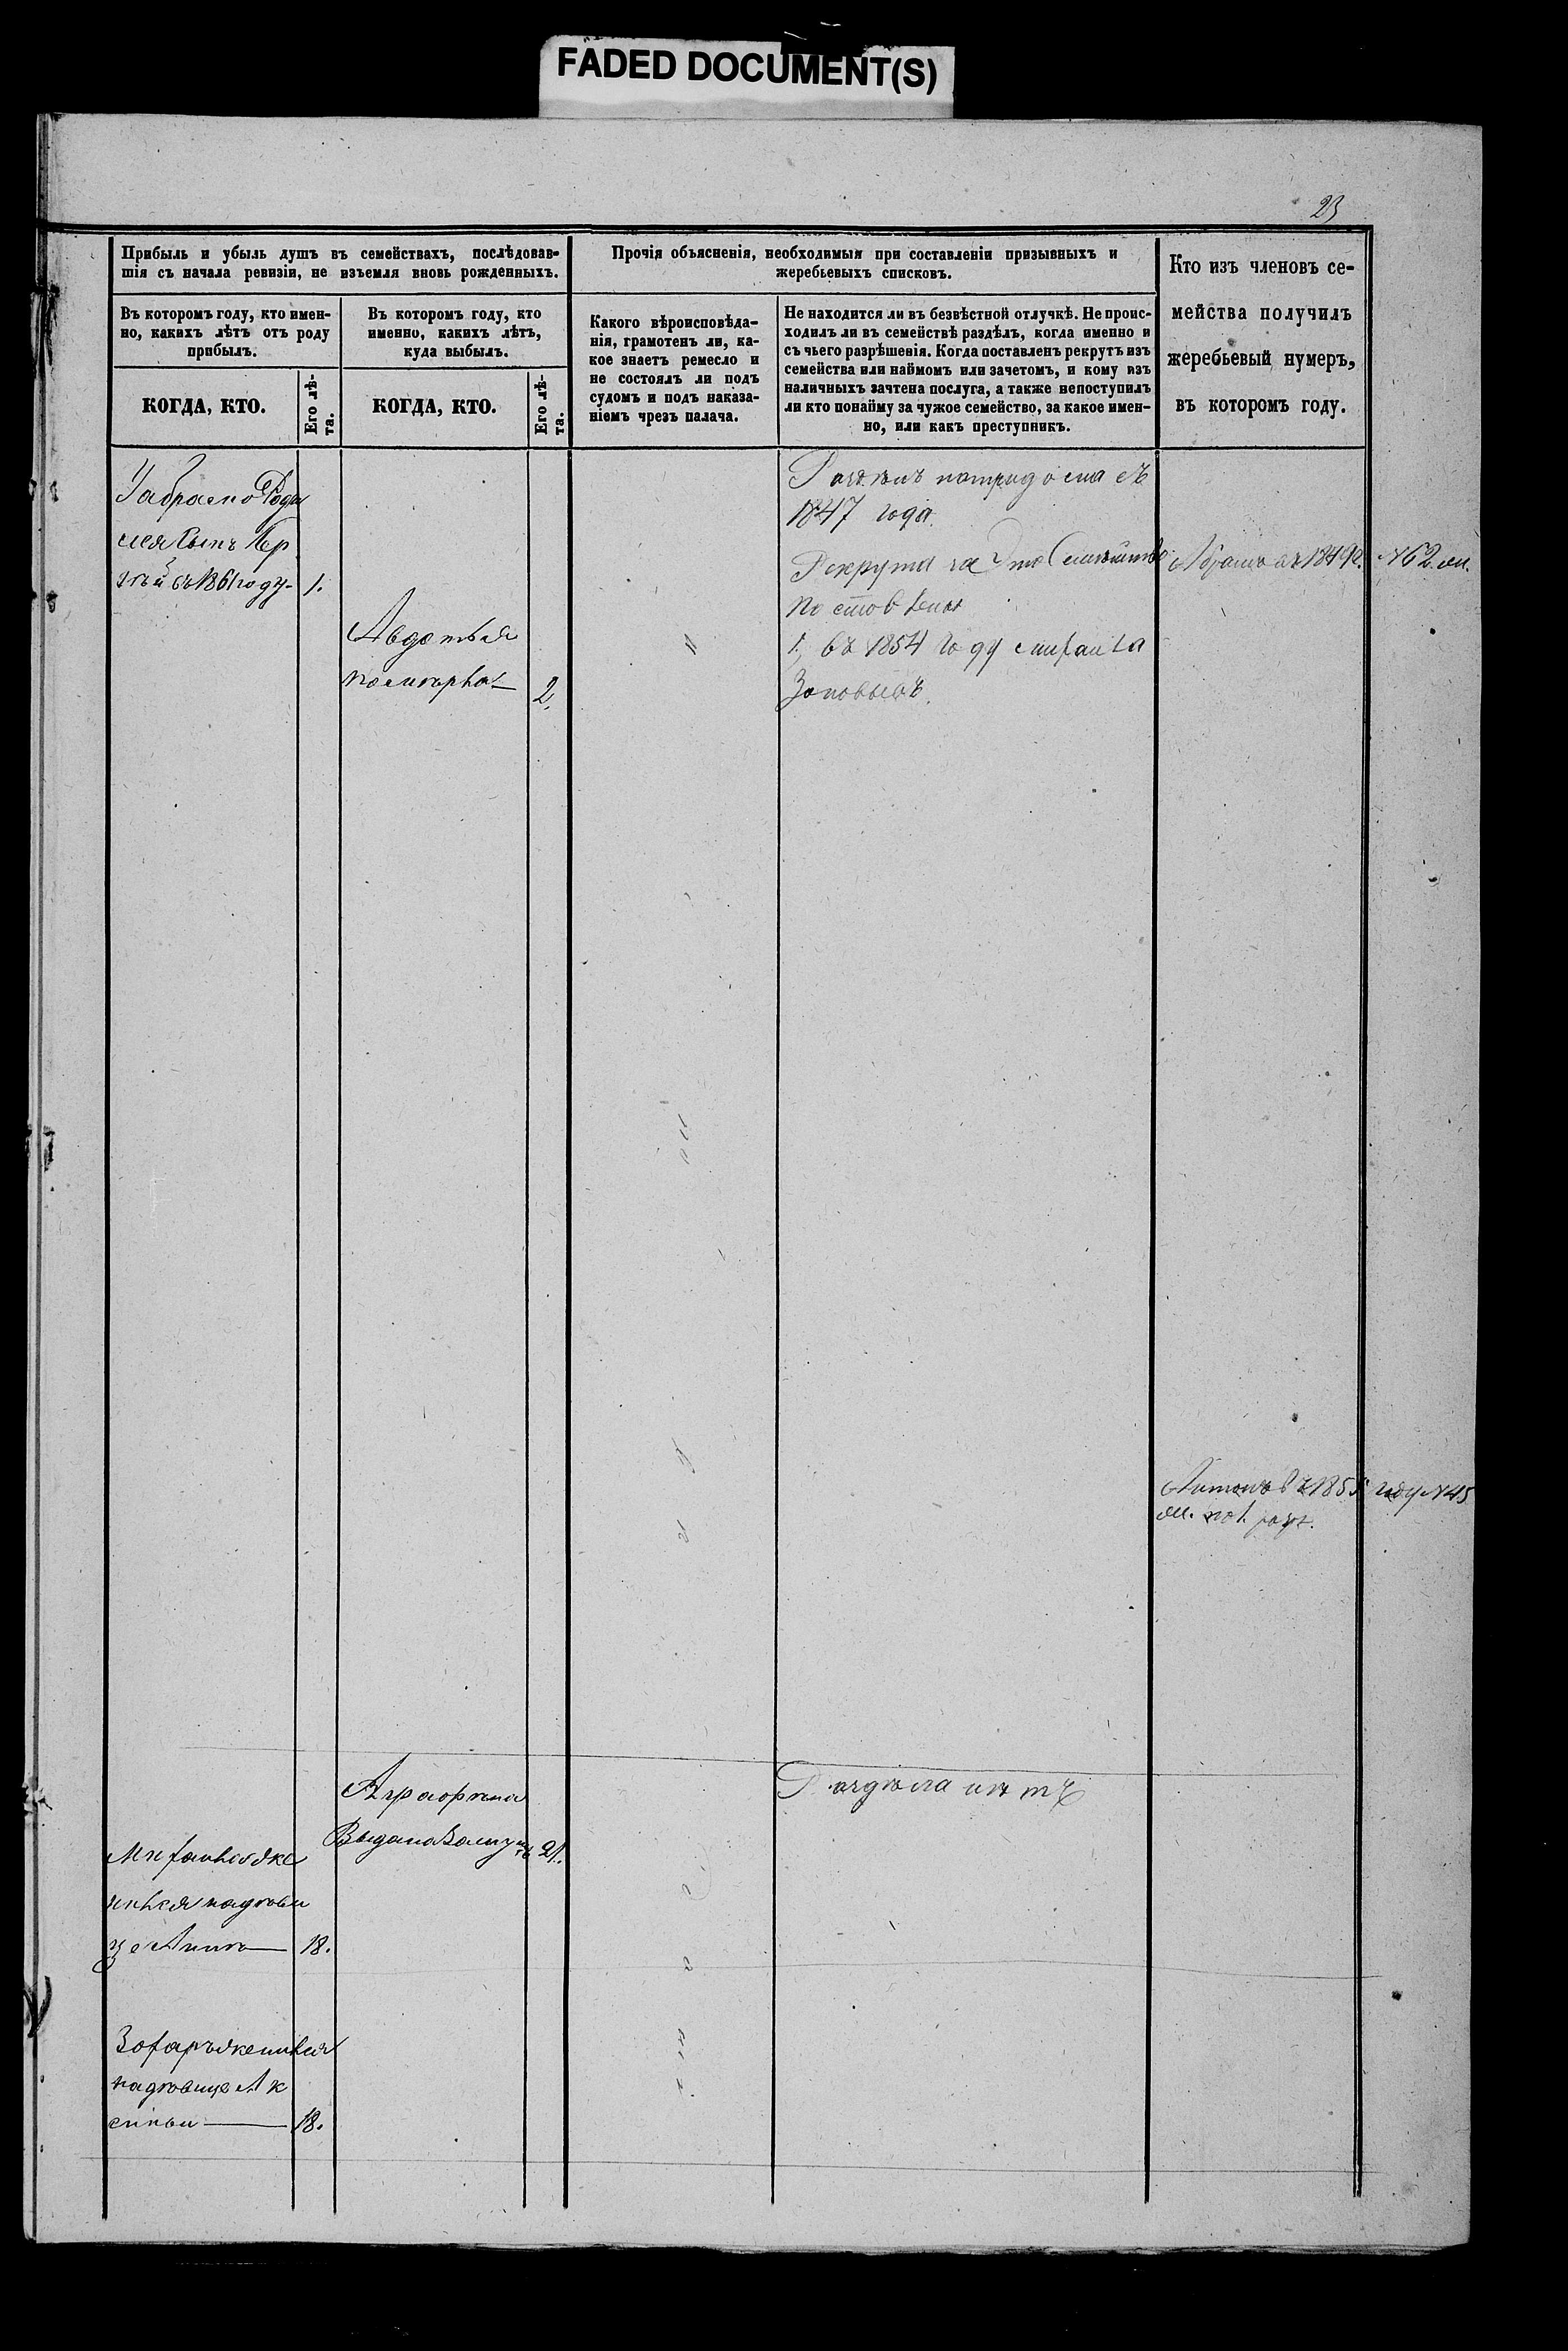 FADED DOCUMENT(S)
23
Прибыль и убыль душъ въ семействахъ, послѣдовав-
шія съ начала ревизіи, не изъемля вновь рожденныхъ.
Прочія объясненія, необходимыя при составленіи призывныхъ и
жеребьевыхъ списковъ.
Кто изъ членовъ се-
мейства получилъ
жеребьевый нумеръ,
въ которомъ году.
Въ которомъ году, кто имен-
но, какихъ лѣтъ отъ роду
прибылъ.
Въ которомъ году, кто
именно, какихъ лѣтъ,
куда выбылъ.
Какого вѣроисповѣда-
нія, грамотенъ ли, ка-
кое знаетъ ремесло и
не состоялъ ли подъ
судомъ и подъ наказа-
ніемъ чрезъ палача.
Не находится ли въ безвѣстной отлучкѣ. Не проис-
ходилъ ли въ семействѣ раздѣлъ, когда именно и
съ чьего разрѣшенія. Когда поставленъ рекрутъ изъ
семейства или наймомъ или зачетомъ, и кому изъ
наличныхъ зачтена послуга, а также непоступилъ
ли кто понайму за чужое семейство, за какое имен-
но, или какъ преступникъ.
КОГДА, КТО.
Его лѣ-
та.
КОГДА, КТО.
Его лѣ-
та.
Уабрамо Роди
лся Сынъ
въ 1861 году 1.
Авдотья
помнорла 2.
на три дома съ
1847 года.
Рекрута за Это Семейство
поставлены
1, въ 1854 году
Абрамъ въ 1849 г. №62.
Антонъ въ 185 году №45
Аграфена
Выдана Замужъ 21.
Раздѣла нѣтъ
Митрофанъ
надѣви
це Анне 18.
Захаръ женился
надѣвице Ак
синьи 18.